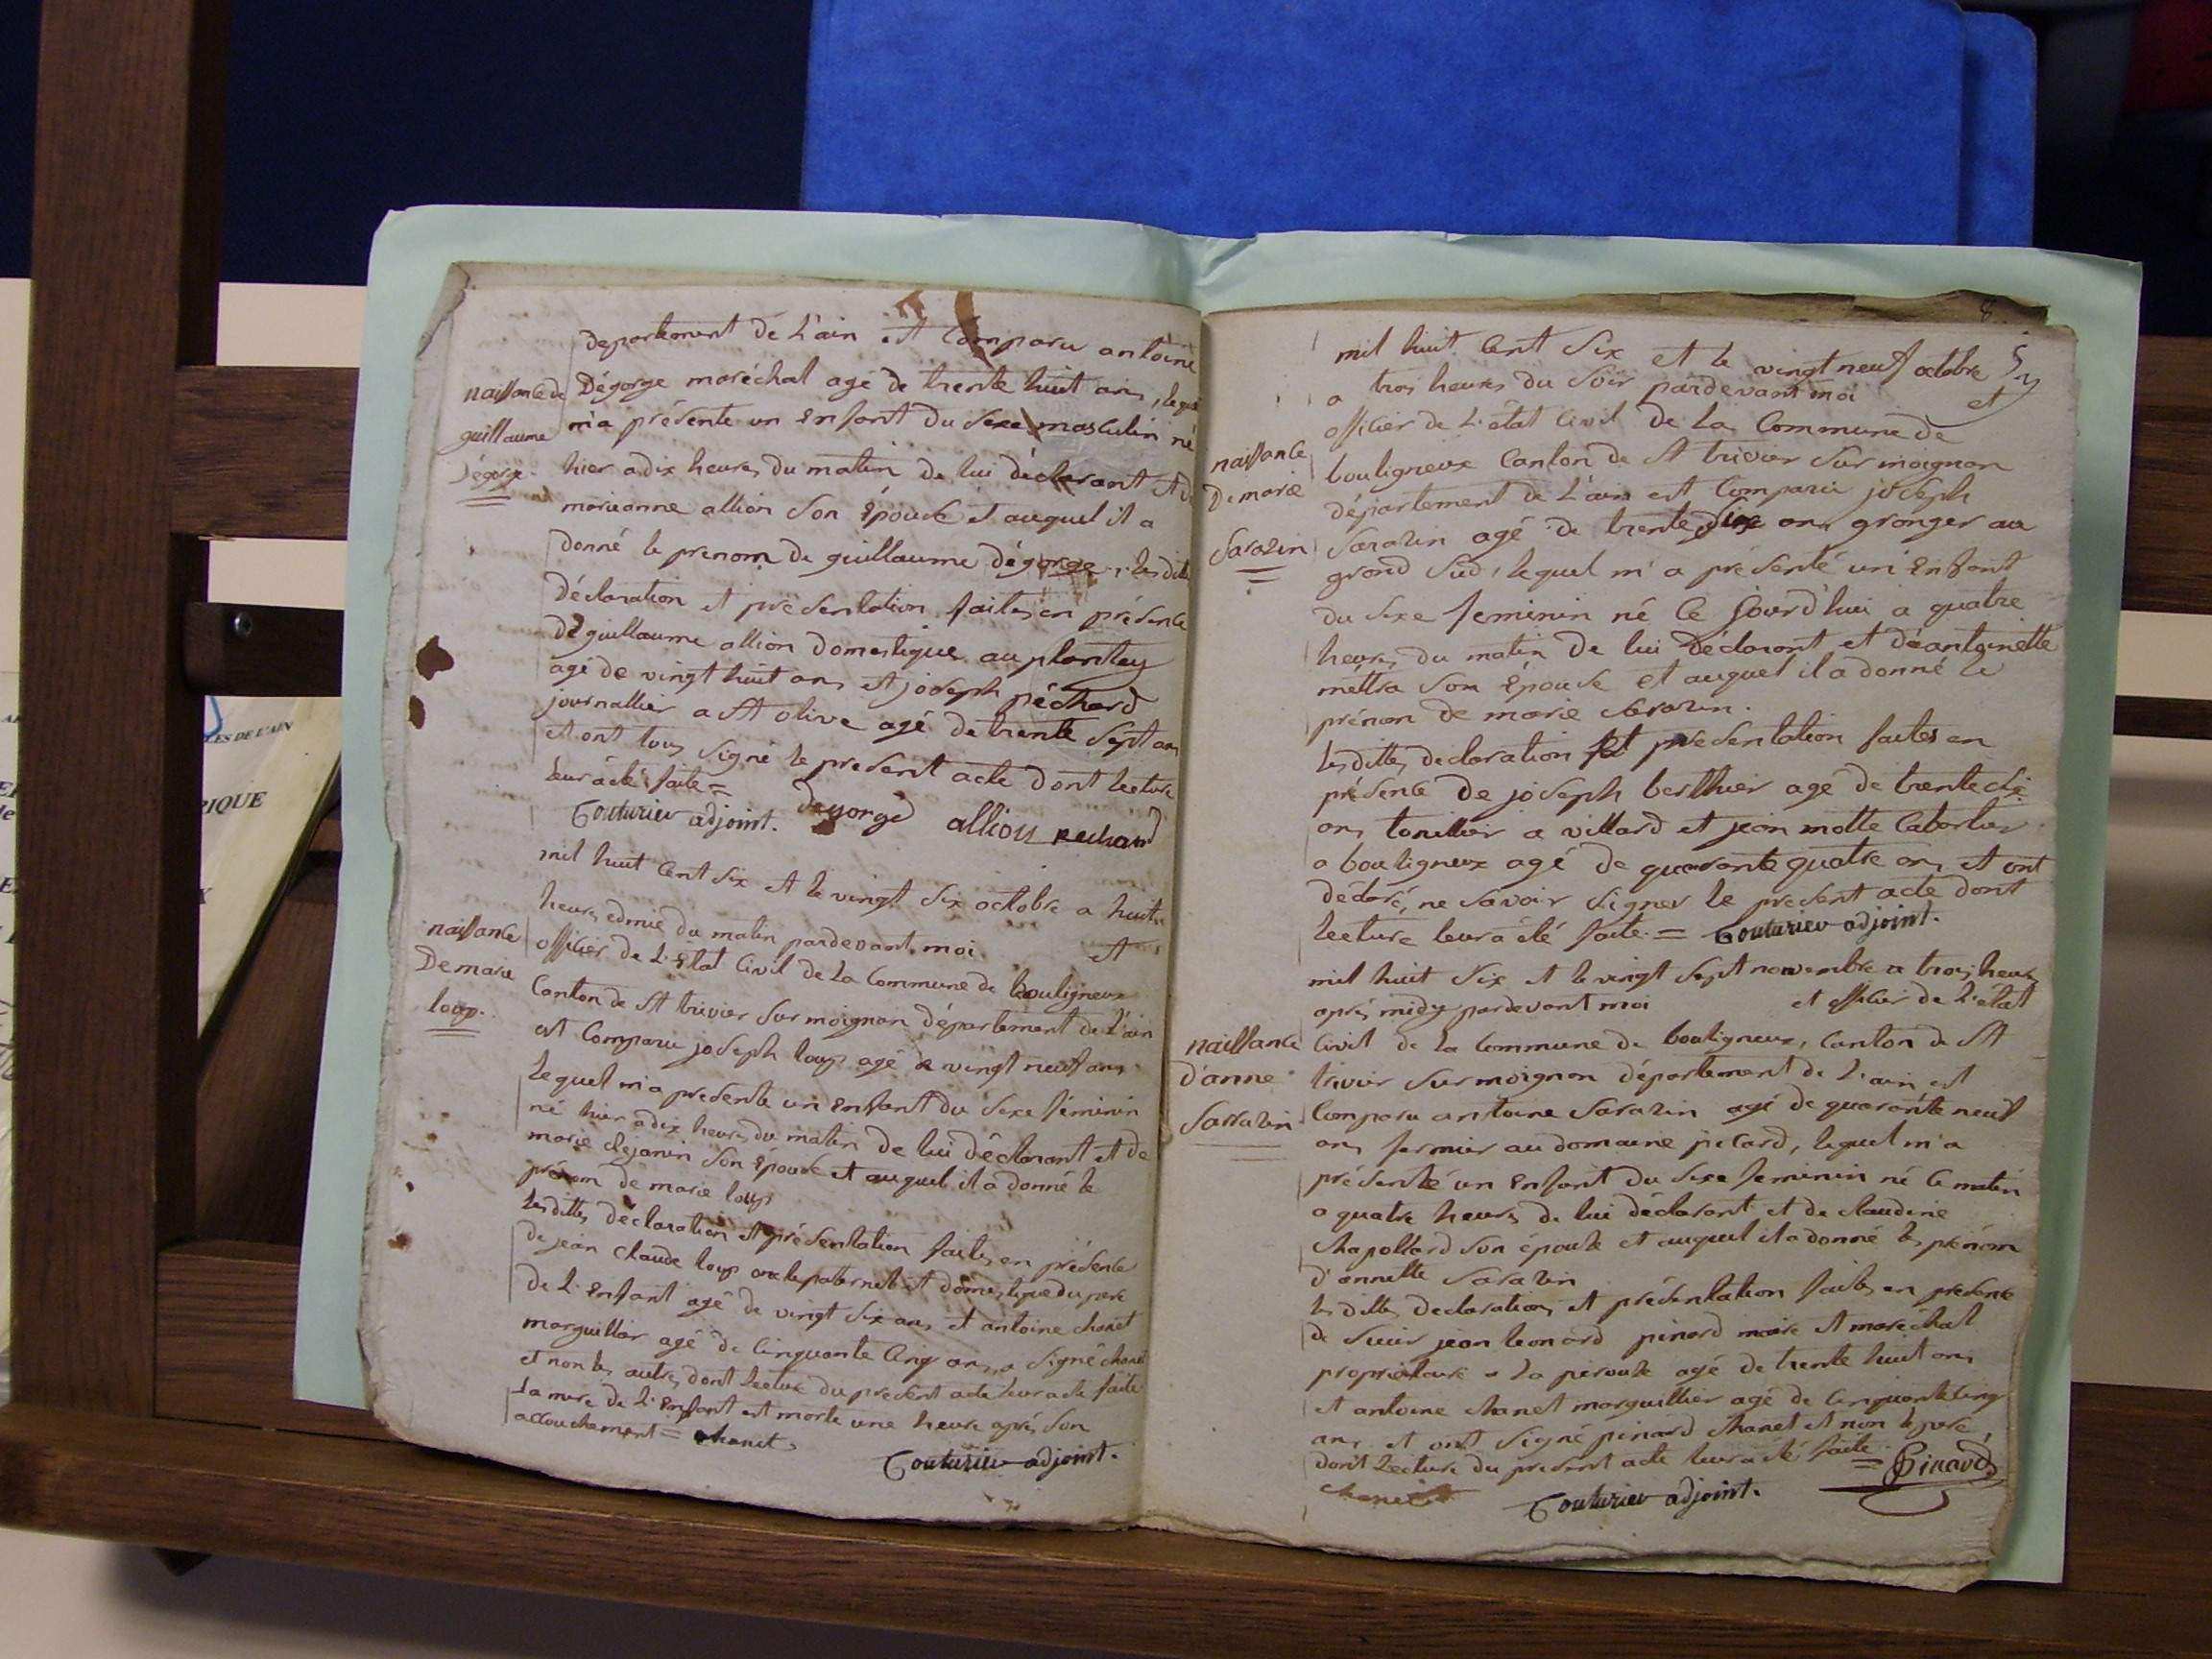 departement de L'ain est Comparu antoine
naissance de
guillaume
dégorge
Dégorge maréchal agé de trente huit ans, lequel
m'a présenté un Enfant du Sexe masculin né
hier a dix heures du matin de lui déclarant et de
marianne allion Son Épouse et auquel il a
donné le prenom de guillaume dégorge, lesdittes
déclaration et présentation faites en présence
de guillaume allion domestique au plantey
agé de vingt huit ans et joseph péchard
journallier a St olive agé de trente Sept ans
et ont tous Signé le present acte dont lecture
leur a été faite =
Couturier adjoint. degorge allion pechard
mil huit Cent Six et le vingt Six octobre a huit
heures edmie du matin pardevant moi et
naissance
De marie
loup.
officier de L'État Civil de la Commune de bouligneux
Canton de St trivier Sur moignan département de L'ain
est Comparu joseph loup agé de vingt neuf ans
lequel m'a presenté un Enfant du Sexe féminin
né hier a dix heures du matin de lui déclarant et de
marie dejanin Son Épouse et auquel il a donné le
prénom de marie loup
lesdittes déclaration et présentation faites en présence
de jean Claude loup oncle paternel et domestique du pere
de L'Enfant agé de vingt Six ans et antoine chanet
marguillier agé de Cinquante Cinq ans, a Signé chanet
et non les autres dont lecture du present acte leur a été faite
La mere de L'Enfant est morte une heure après Son
accouchement = chanet
Couturier adjoint.
8
mil huit Cent Six et le vingt neuf octobre
a trois heures du Soir pardevant moi et
officier de L'état Civil de la Commune de
naissance
De marie
Sarazin
bouligneux Canton de St trivier Sur moignan
département de L'ain est Comparu joseph
Sarazin agé de trente Six ans granger au
grand Sud, lequel m'a présenté un Enfant
du Sexe feminin né Ce jourd'hui a quatre
heures du matin De lui Déclarant et de antoinette
mettra Son Épouse et auquel il a donné le
prénom de marie Sarazin.
lesdittes declaration et presentation faites en
présence De joseph berthier agé de trente Six
ans tonillier a villard et jean motte Cabartier
a bouligneux agé de quarante quatre ans et ont
déclaré, ne Savoir Signer le present acte dont
lecture leur a été faite. = Couturier adjoint.
mil huit Six et le vingt Sept novembre a trois heures
après midy pardevant moi et officier de L'état
naissance
d'anne
Sarrazin
Civil de la Commune de bouligneux, Canton de St
trivier Sur moignan département de L'ain est
Comparu antoine Sarazin agé de quarante neuf
ans fermier au domaine picard, lequel m'a
présenté un Enfant du Sexe feminin né Ce matin
a quatre heures de lui déclarant et de claudine
Chapollard Son épouse et auquel il a donné les prénom
d'annette Sarazin
lesdittes declaration et présentation faites en presence
de Sieur jean leonard pinard maire et maréchal
propriétaire a la pérouse agé de trente huit ans
et antoine chanet marguillier agé de Cinquante Cinq
ans et ont Signé pinard chanet et non le pere,
dont Lecture du present acte leur a été faite. = Pinard
chanet Couturier adjoint.
LES DE L'AIN
RIQUE